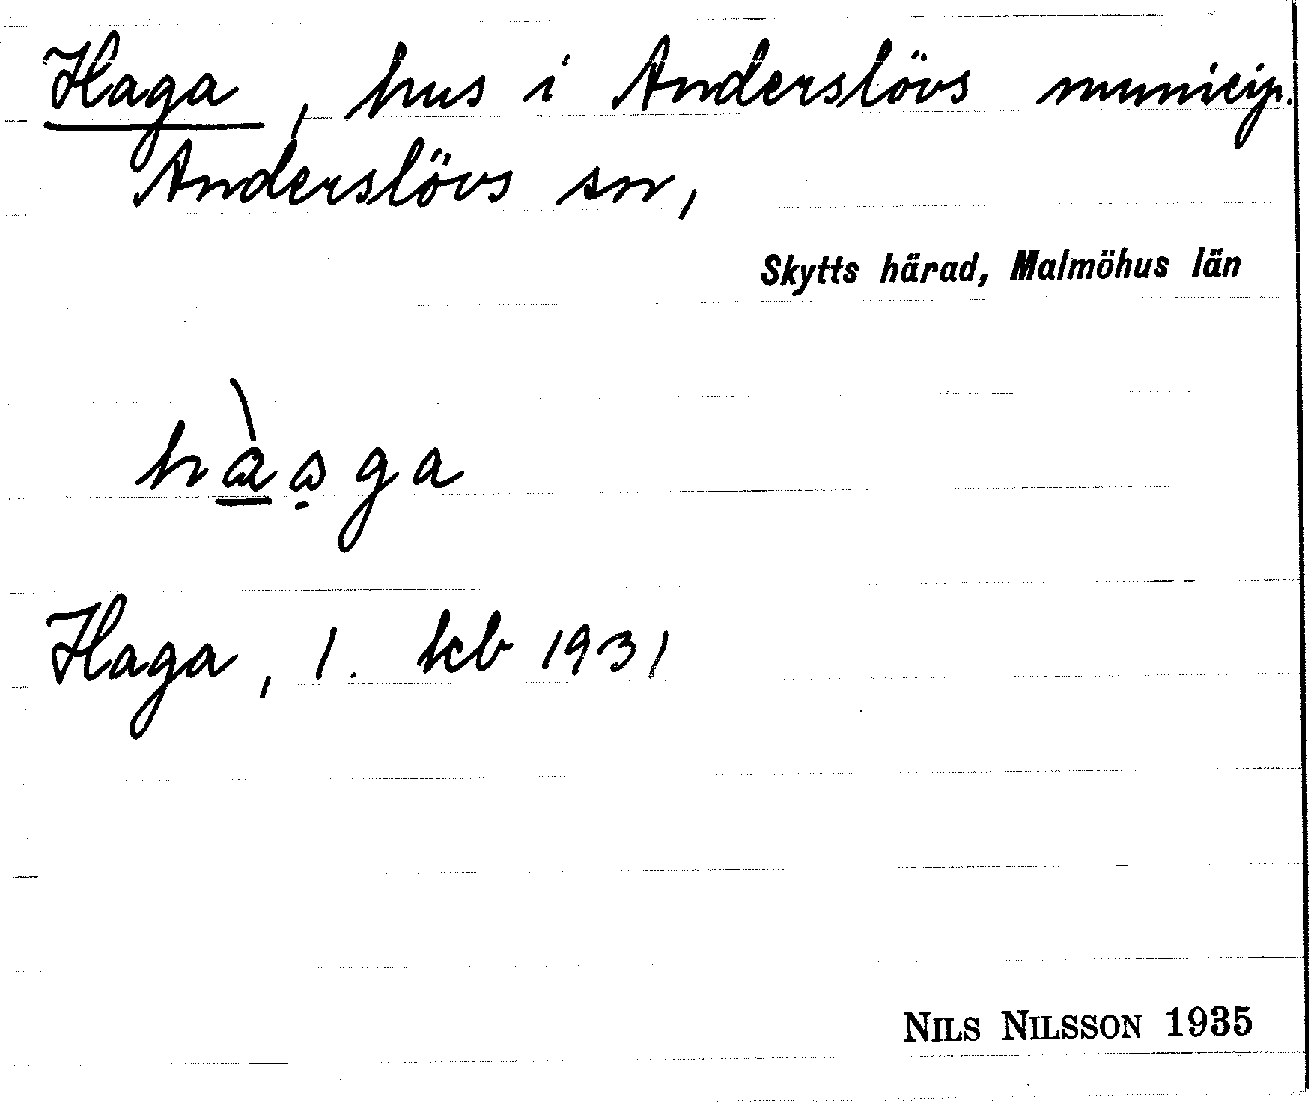 Haga, hus i Anderslövs municip.
Anderslövs sn,
Skytts härad, Malmöhus län
hàạga
Haga, 1. kb 1931
NILS NILSSON 1935